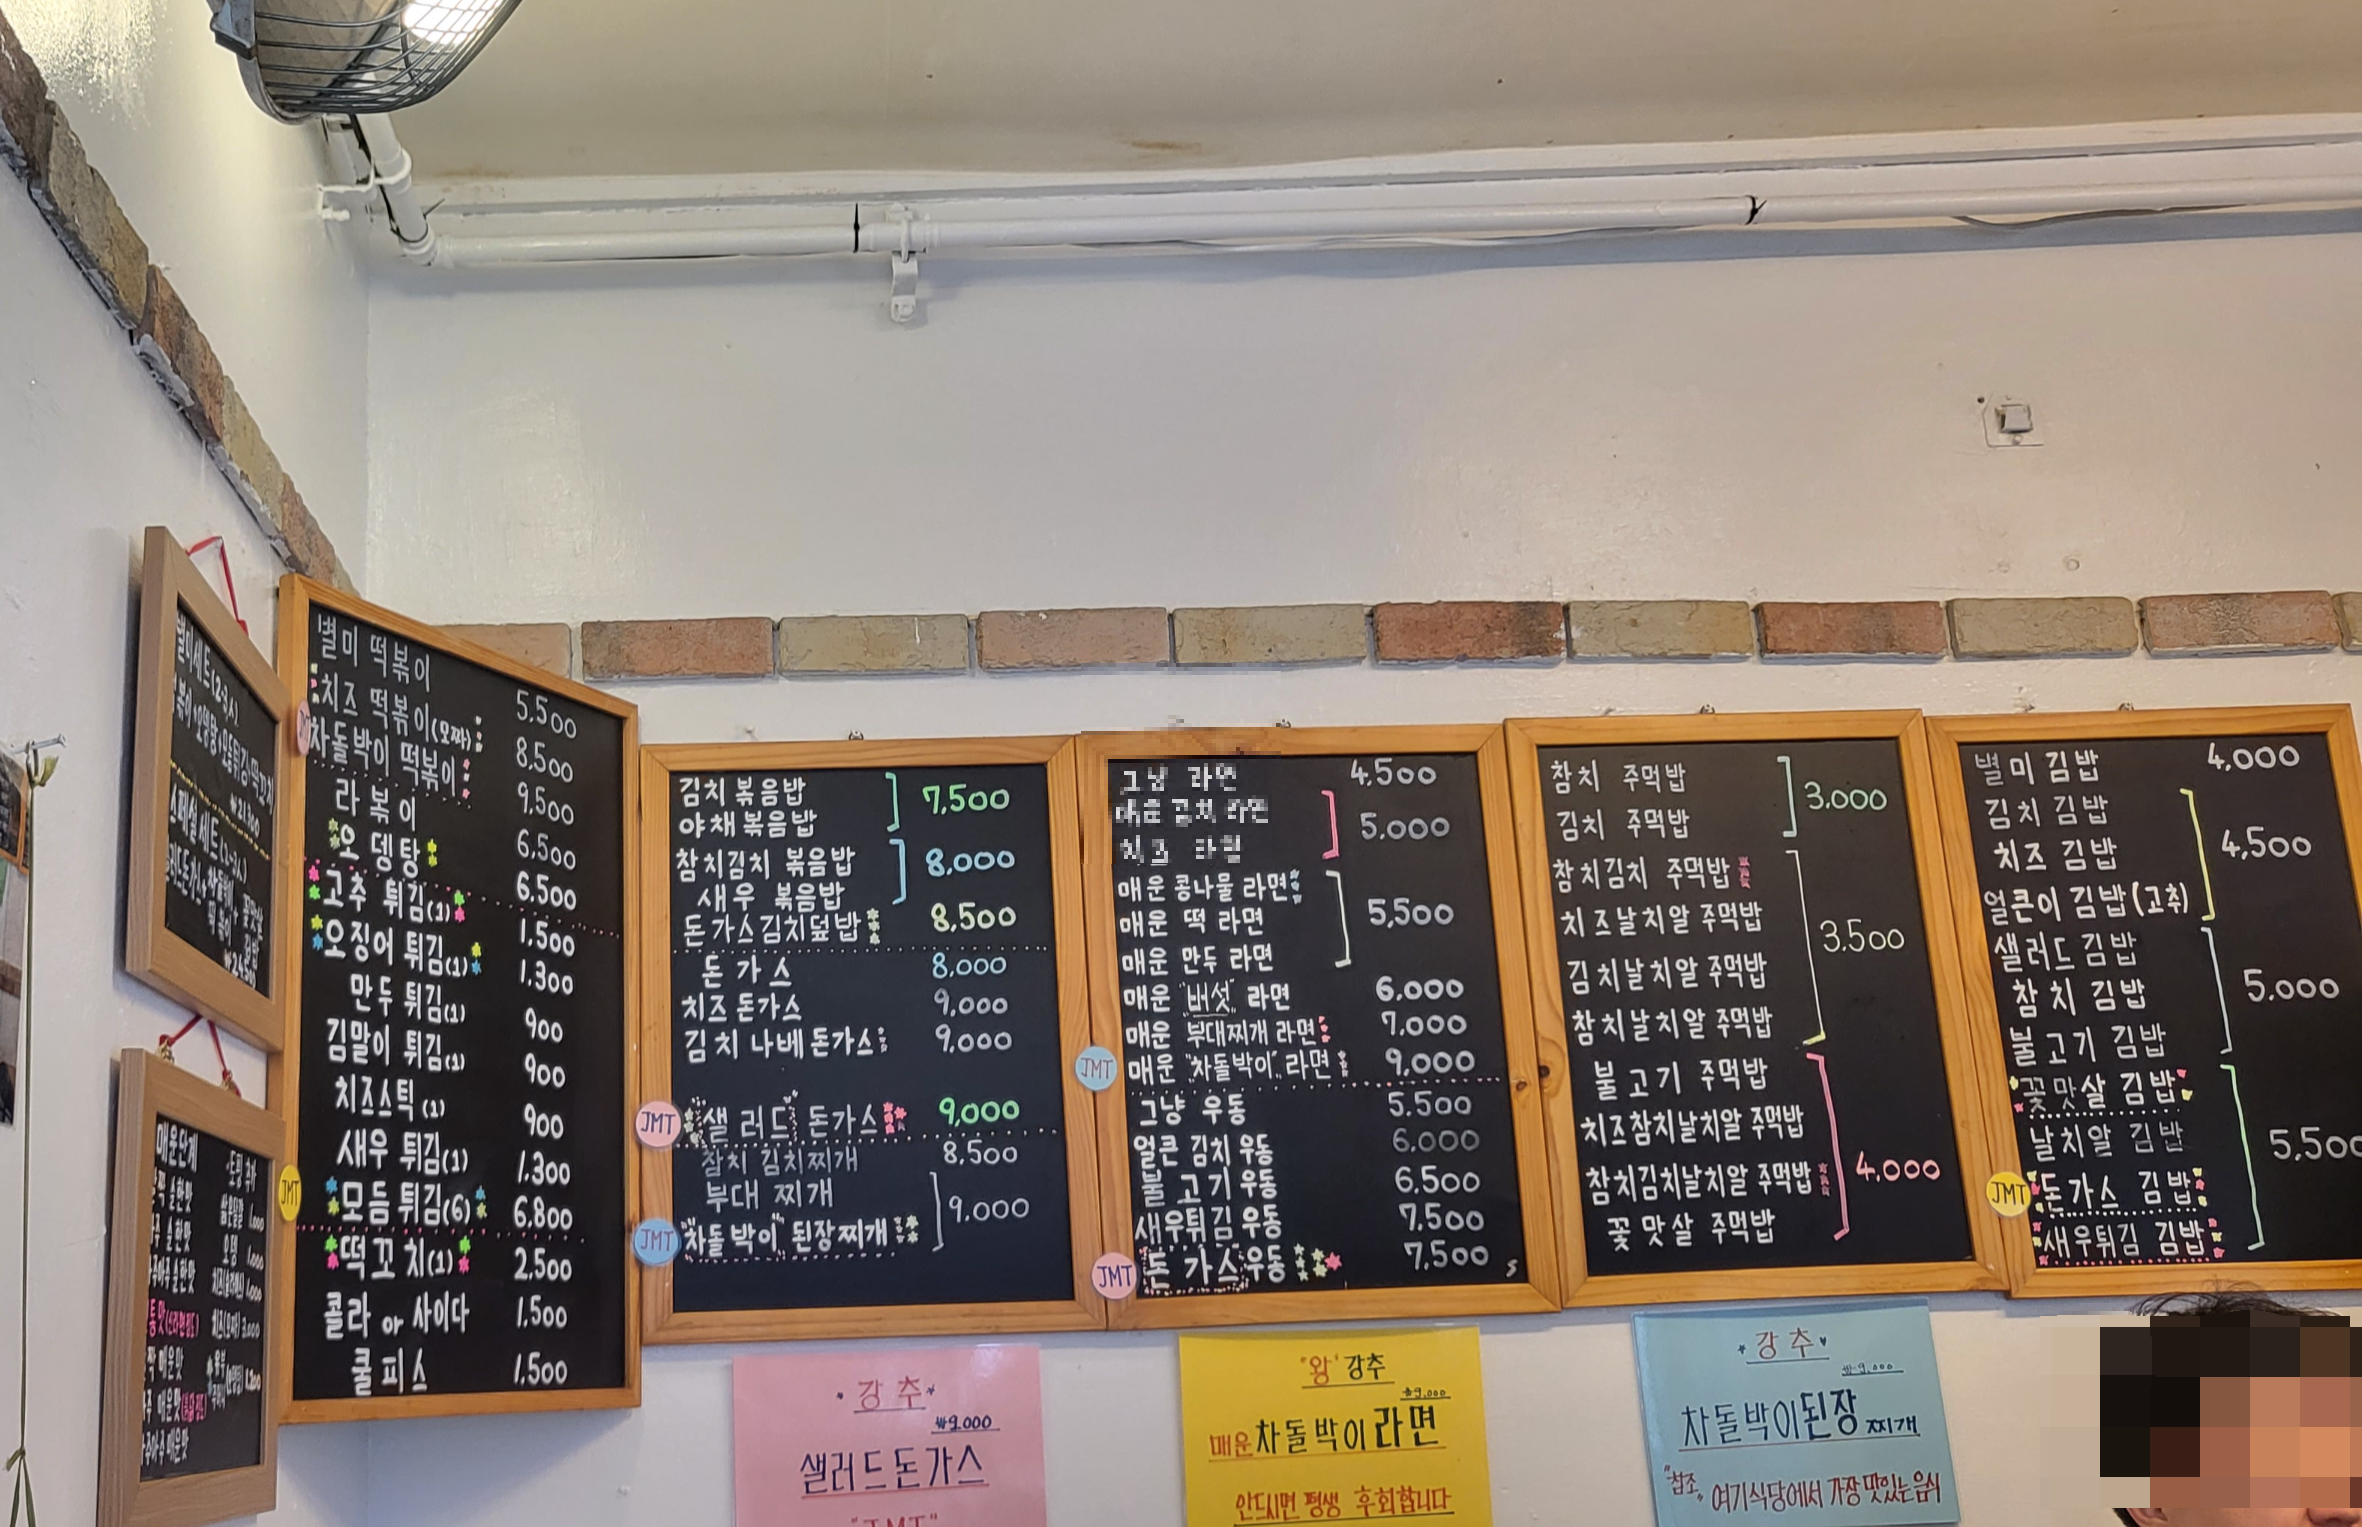 별미세트(2-3人)
₩21,300
스페셜 세트(2-3人)
₩24,500
매운단계
삶은달걀 1,000
오뎅 1,000
매운맛
별미 떡볶이 5,500
치즈 떡볶이(모짜) 8,500
차돌박이 떡볶이 9,500
라 볶 이 6,500
오 뎅 탕 6,500
고추 튀김(1) 1,500
오징어 튀김(1) 1,300
만두 튀김(1) 900
김말이 튀김(1) 900
치즈스틱(1) 900
새우 튀김(1) 1,300
JMT 모듬 튀김(6) 6,800
떡 꼬 치(1) 2,500
콜라 or 사이다 1,500
쿨 피 스 1,500
김치 볶음밥
야채 볶음밥
7,500
참치김치 볶음밥
새우 볶음밥
8,000
돈가스김치덮밥 8,500
돈 가 스 8,000
치즈 돈가스 9,000
김치 나베 돈가스 9,000
JMT 샐러드 돈가스 9,000
참치 김치찌개 8,500
부대 찌개
JMT "차돌박이" 된장찌개
9,000
그냥 라면 4,500
김치 라면
치즈 라면
5,000
매운 콩나물 라면
매운 떡 라면
매운 만두 라면
5,500
매운 "버섯" 라면 6,000
매운 부대찌개 라면 7,000
JMT 매운 "차돌박이" 라면 9,000
그냥 우동 5,500
얼큰 김치 우동 6,000
불고기 우동 6,500
새우튀김 우동 7,500
JMT 돈가스 우동 7,500
참치 주먹밥
김치 주먹밥
3,000
참치김치 주먹밥
치즈날치알 주먹밥
김치날치알 주먹밥
참치날치알 주먹밥
3,500
불고기 주먹밥
치즈참치날치알 주먹밥
참치김치날치알 주먹밥
꽃맛살 주먹밥
4,000
별미 김밥 4,000
김치 김밥
치즈 김밥
얼큰이 김밥(고추)
4,500
샐러드 김밥
참치 김밥
불고기 김밥
5,000
꽃맛살 김밥
날치알 김밥
JMT 돈가스 김밥
새우튀김 김밥
5,500
강추
₩9,000
샐러드돈가스
"JMT"
"왕" 강추
₩9,000
매운차돌박이라면
안드시면 평생 후회합니다
강추
₩9,000
차돌박이된장찌개
"참조" 여기식당에서 가장 맛있는 음식